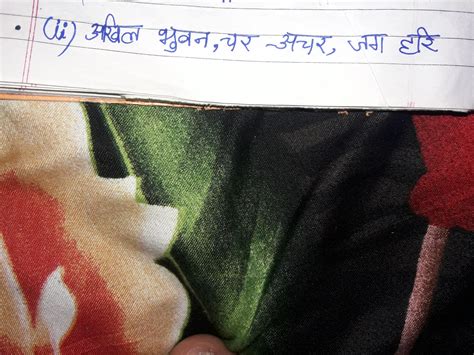 (ii) अखिल भुवन, चर -अचर, जग हरि